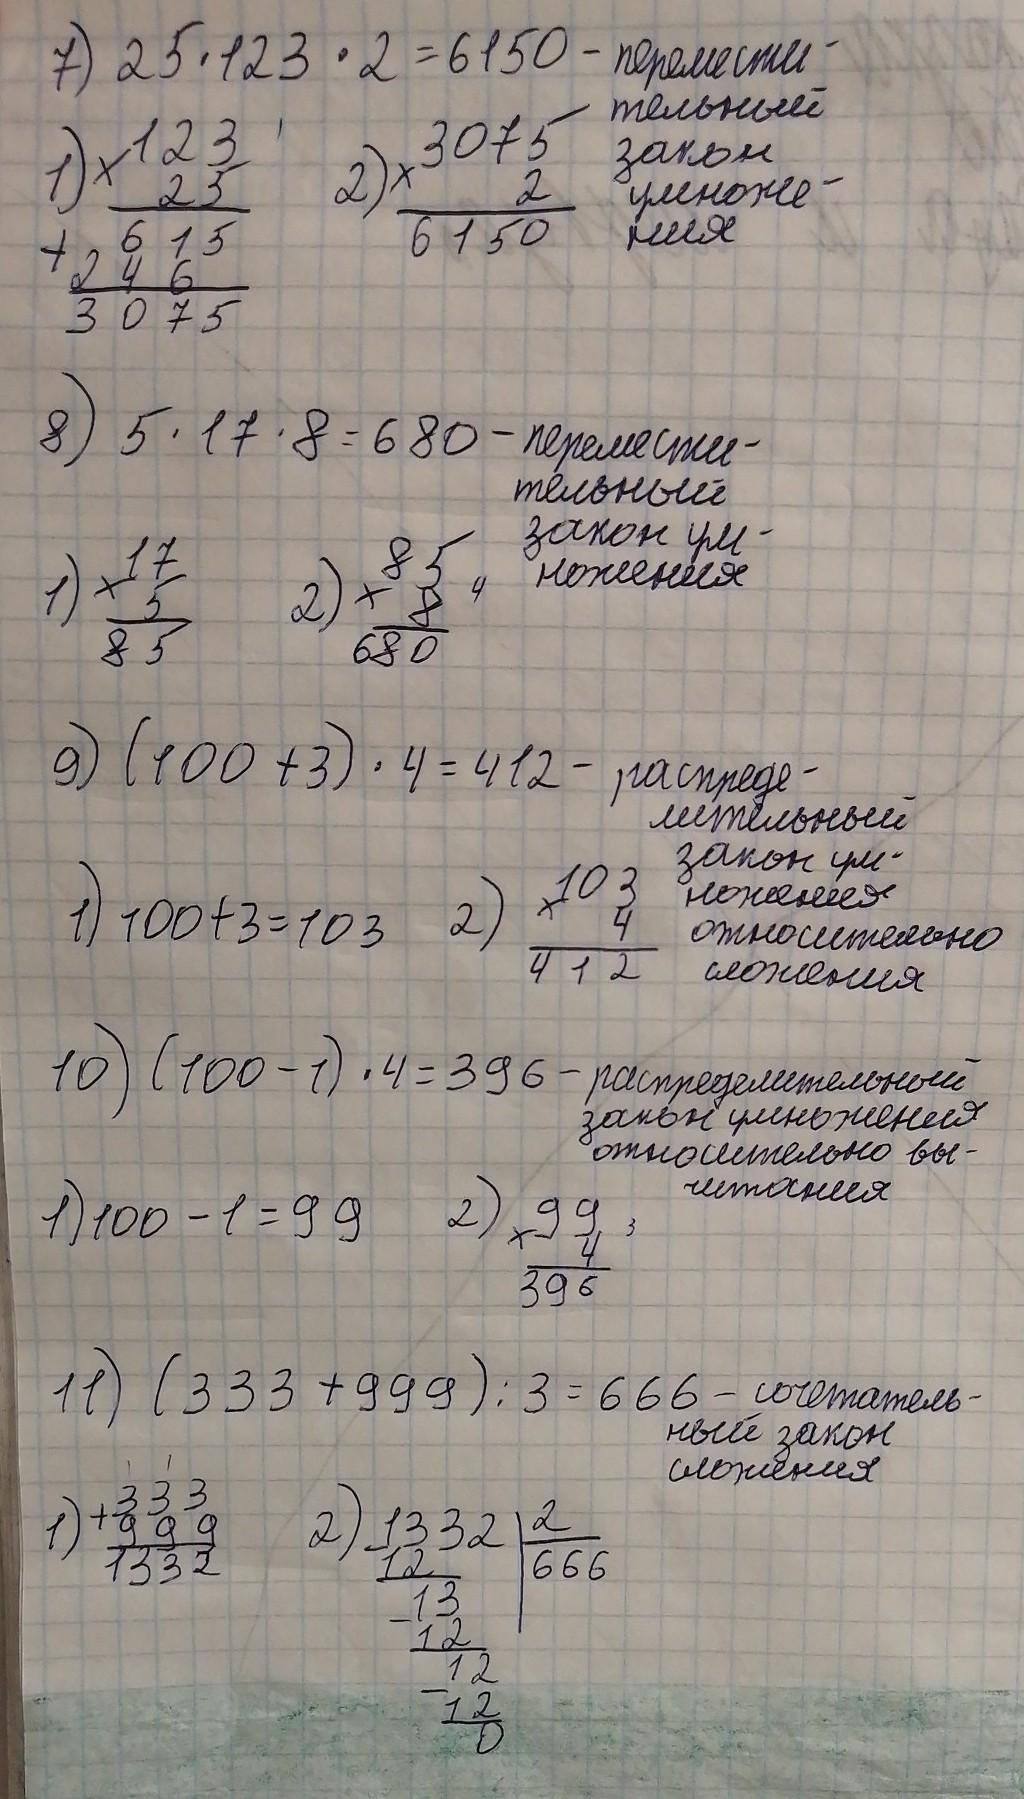 7) 25·123·2=6150 - перемести-
тельный
закон
умноже-
ния
1) × 123
25
+ 615
246
3075
2) × 3075
2
6150
8) 5·17·8=680 - перемести-
тельный
закон ум-
ножения
1) × 17
5
85
2) × 85 4
8
680
9) (100+3)·4=412 - распреде-
лительный
закон ум-
ножения
относительно
сложения
1) 100+3=103
2) × 103
4
412
10) (100-1)·4=396 - распределительный
закон умножения
относительно вы-
читания
1) 100-1=99
2) × 99 3
4
396
11) (333+999):3=666 - сочетатель-
ный закон
сложения
1) + 333
999
1332
2) 1332 | 2
12 666
- 13
12
- 12
12
0